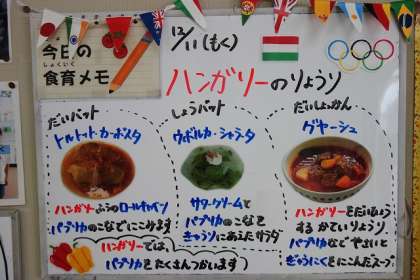 今日の
しょくいく
食育メモ
12/11(もく)
ハンガリーのりょうり
だいバット
トルトット・カーポスタ
ハンガリーふうのロールキャベツ
パプリカのこなでにこみます
しょうバット
ウボルカ・シャラータ
サワークリームと
パプリカのこなを
きゅうりにあえたサラダ
だいしょっかん
グヤーシュ
ハンガリーをだいひょう
するかていりょうり
パプリカなどやさいと
ぎゅうにくをにこんだスープ
ハンガリーでは、
パプリカをたくさんつかいます